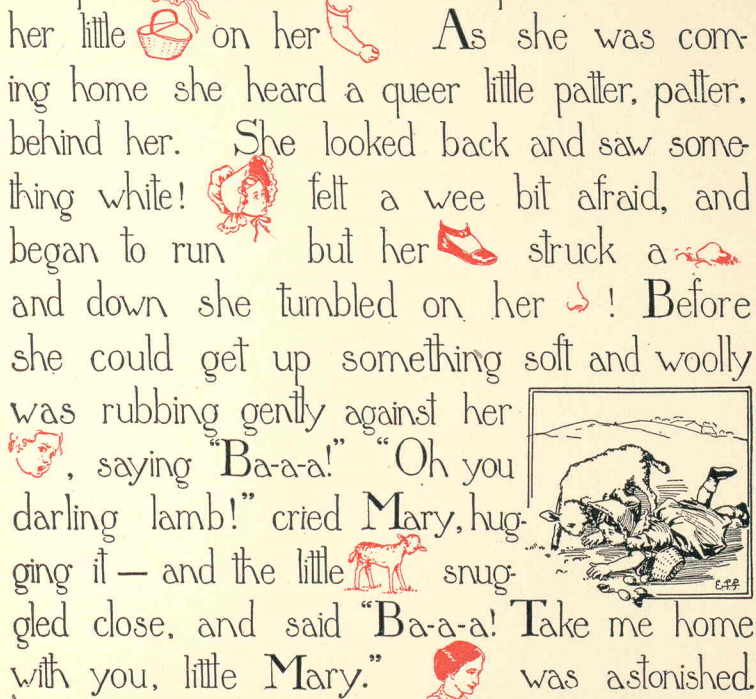 her little on her As she was com-
ing home she heard a queer little patter, patter,
behind her. She looked back and saw some-
thing white! felt a wee bit afraid, and
began to run but her struck a
and down she tumbled on her ! Before
she could get up something soft and woolly
was rubbing gently against her
, saying "Ba-a-a!" "Oh you
darling lamb!" cried Mary, hug-
ging it — and the little snug-
gled close, and said "Ba-a-a! Take me home
with you, little Mary." was astonished.